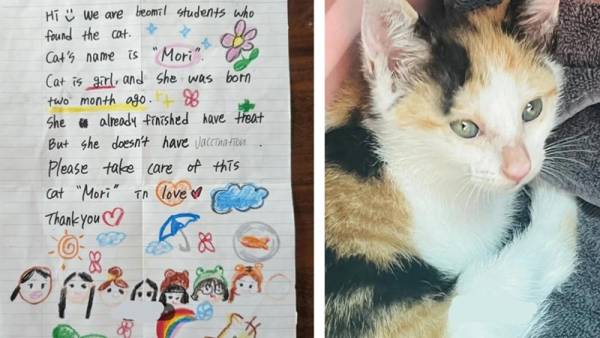 Hi We are beomil students who
found the cat.
Cat's name is "Mori".
Cat is girl, and she was born
two month ago.
She already finished have treat
But she doesn't have Vaccination.
Please take care of this
Cat "Mori" in love
Thank you